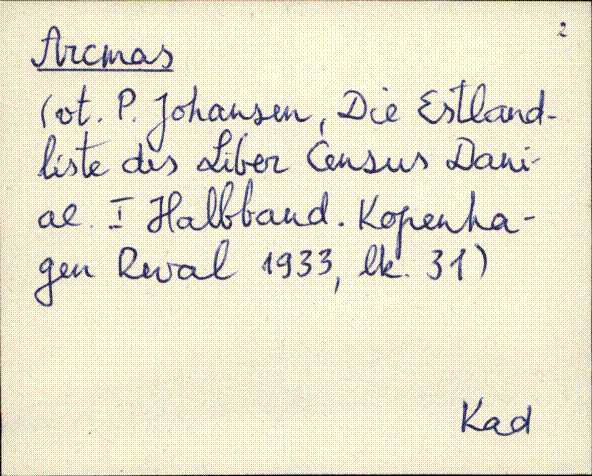 2
Arcmas
(vt. P. Johansen, Die Estland-
liste des Liber Census Dani-
ae. I Halbband. Kopenha-
gen Reval 1933, lk. 31)
Kad